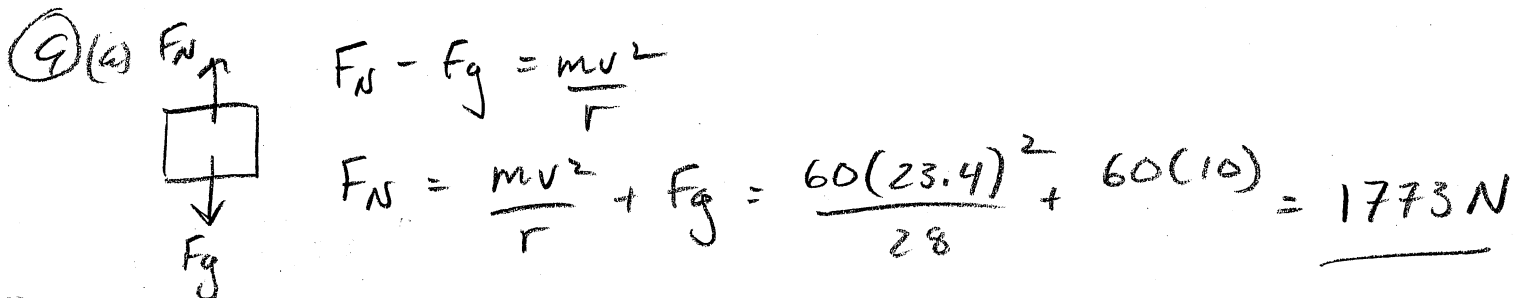 9 (a) FN FN - Fg = mv²/r
FN = mv²/r + Fg = 60(23.4)²/28 + 60(10) = 1773 N
Fg